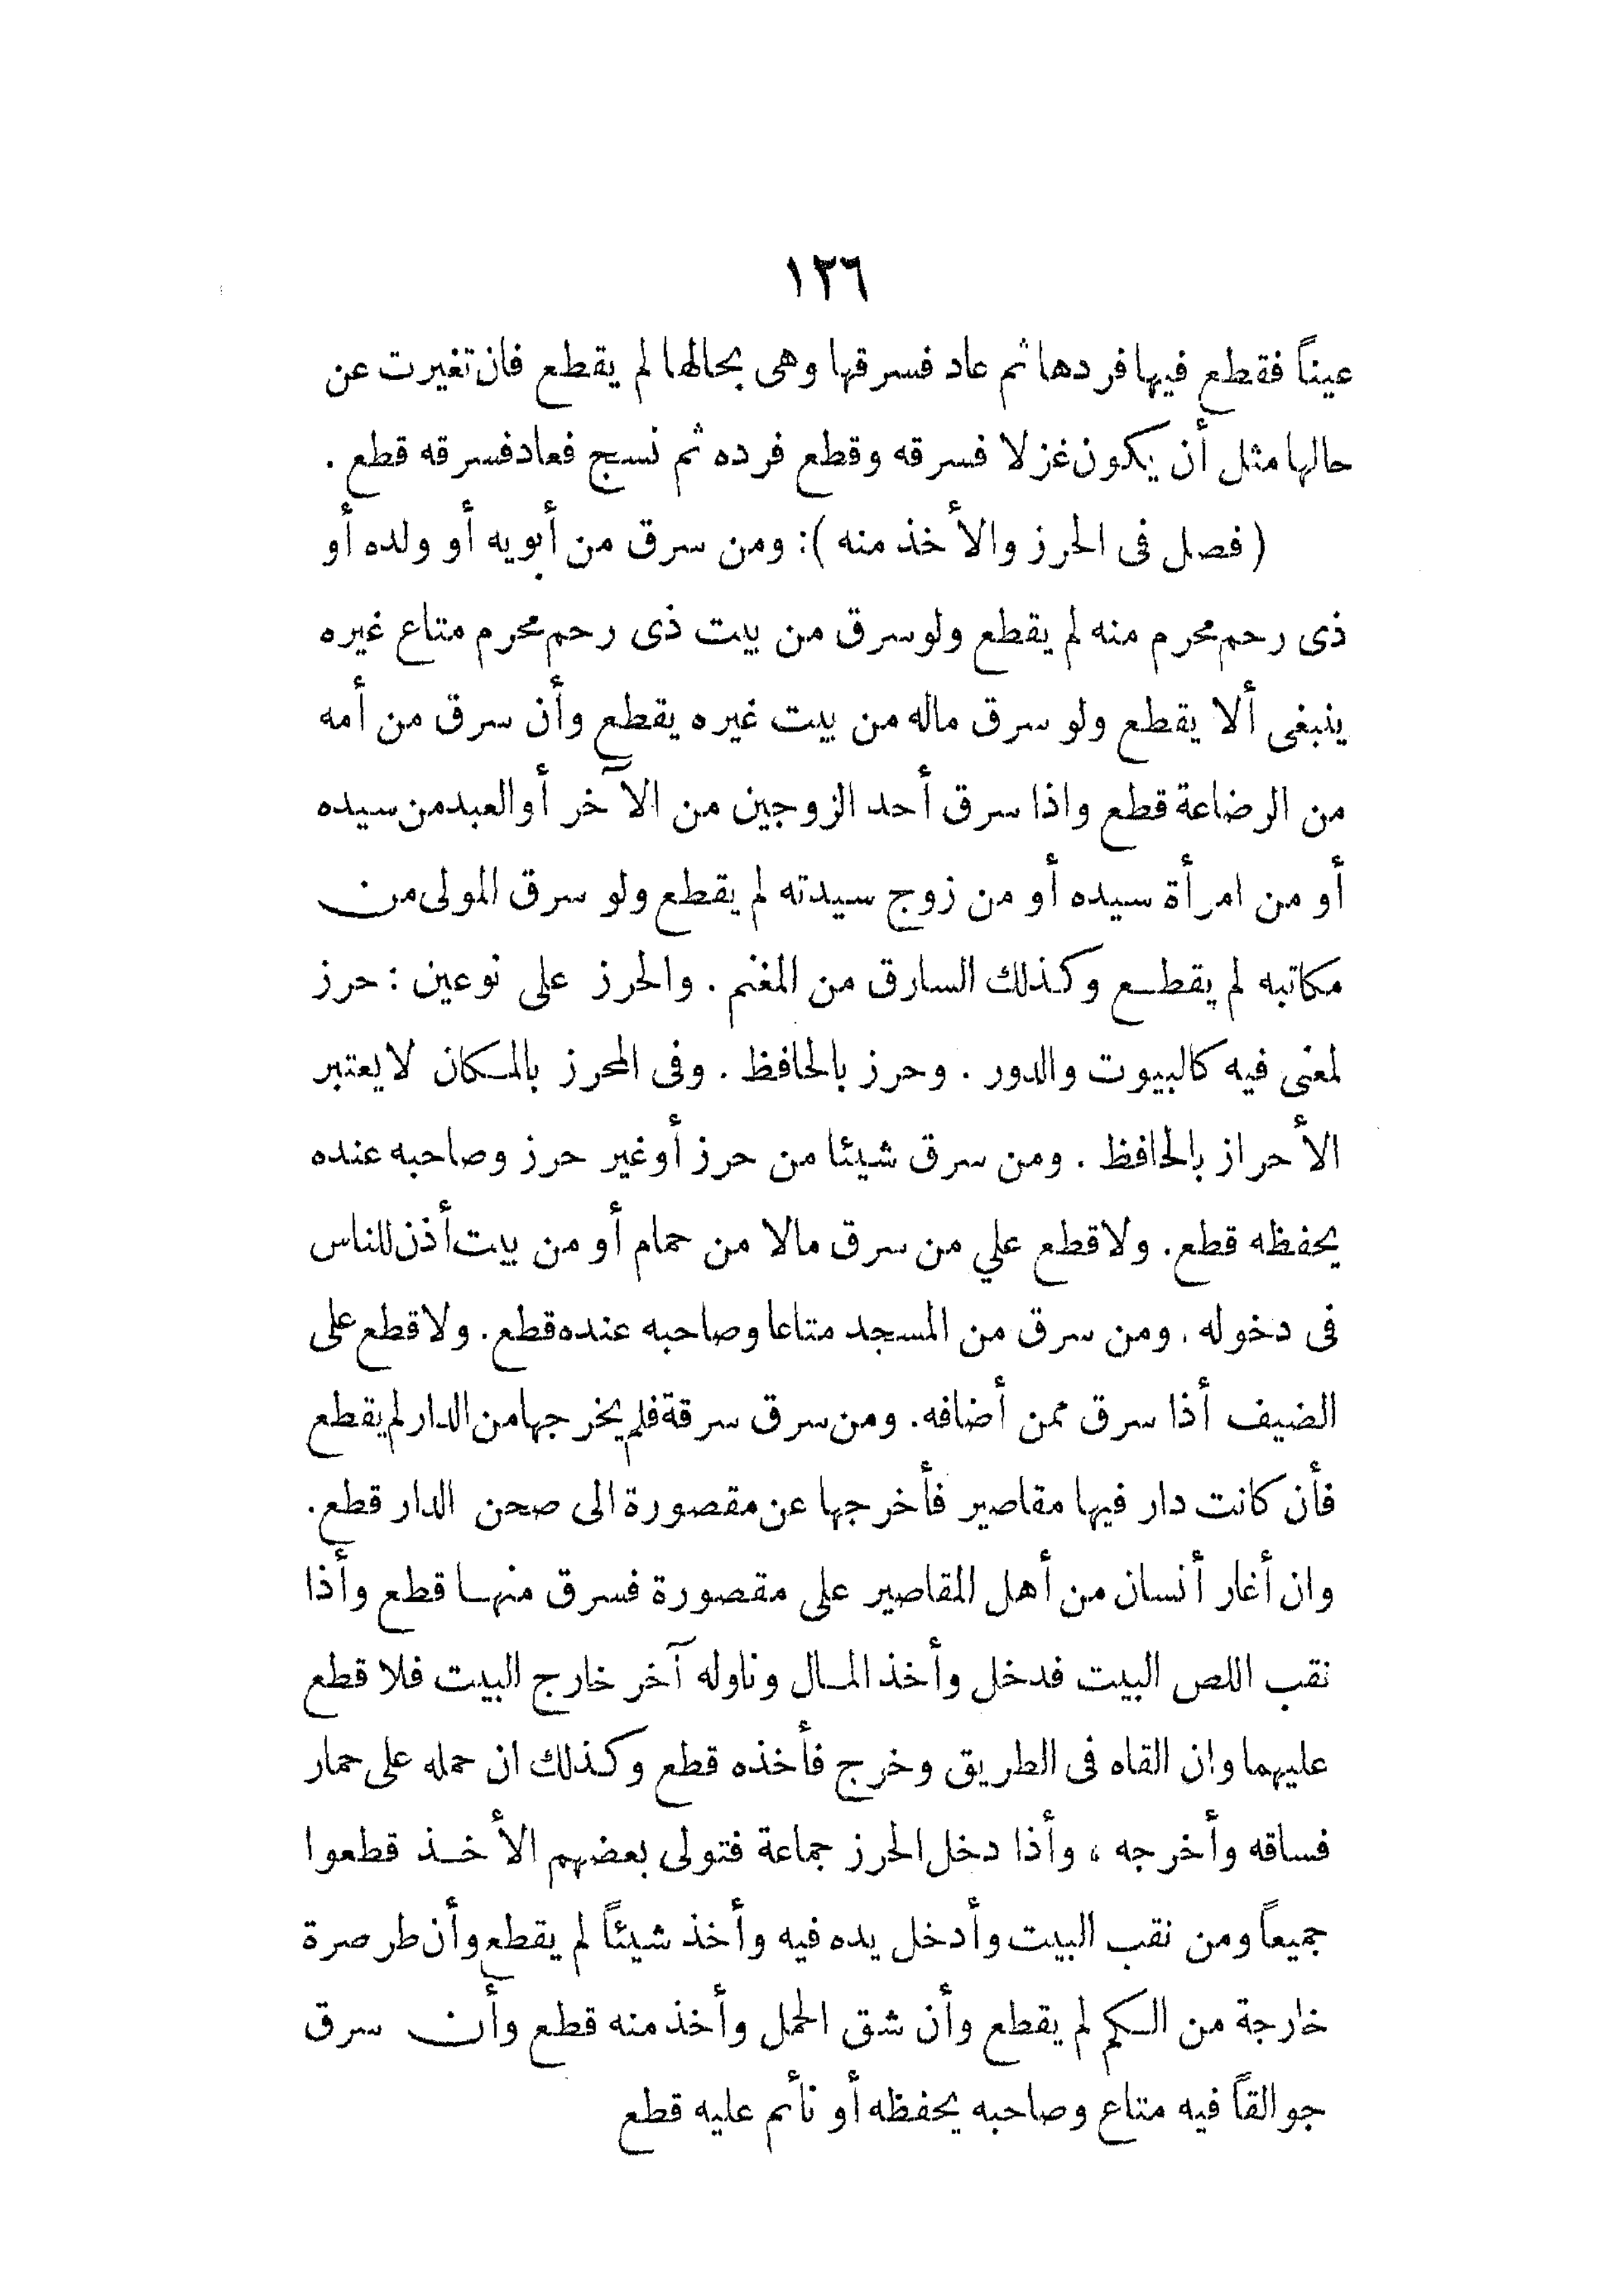 ١٢٦
عيناً فقطع فيها فردها ثم عاد فسرقها وهى بحالها لم يقطع فان تغيرت عن
حالها مثل أن يكون غزلا فسرقه وقطع فرده ثم نسج فعاد فسرقه قطع .
( فصل فى الحرز والأخذ منه ): ومن سرق من أبويه أو ولده أو
ذى رحم محرم منه لم يقطع ولو سرق من بيت ذى رحم محرم متاع غيره
ينبغى ألا يقطع ولو سرق ماله من بيت غيره يقطع وأن سرق من أمه
من الرضاعة قطع واذا سرق أحد الزوجين من الآخر أو العبد من سيده
أو من امرأة سيده أو من زوج سيدته لم يقطع ولو سرق المولى من
مكاتبه لم يقطع وكذلك السارق من المغنم . والحرز على نوعين : حرز
لمعنى فيه كالبيوت والدور . وحرز بالحافظ . وفى المحرز بالمكان لا يعتبر
الأحراز بالحافظ . ومن سرق شيئا من حرز أو غير حرز وصاحبه عنده
يحفظه قطع . ولا قطع علي من سرق مالا من حمام أو من بيت أذن للناس
فى دخوله . ومن سرق من المسجد متاعا وصاحبه عنده قطع . ولا قطع على
الضيف أذا سرق ممن أضافه . ومن سرق سرقة فلم يخرجها من الدار لم يقطع
فأن كانت دار فيها مقاصير فأخرجها عن مقصورة الى صحن الدار قطع .
وان أغار أنسان من أهل المقاصير على مقصورة فسرق منها قطع وأذا
نقب اللص البيت فدخل وأخذ المال وناوله آخر خارج البيت فلا قطع
عليهما وان القاه فى الطريق وخرج فأخذه قطع وكذلك ان حمله على حمار
فساقه وأخرجه ، وأذا دخل الحرز جماعة فتولى بعضهم الأخذ قطعوا
جميعاً ومن نقب البيت وأدخل يده فيه وأخذ شيئاً لم يقطع وأن طر صرة
خارجة من الكم لم يقطع وأن شق الحمل وأخذ منه قطع وأن سرق
جوالقاً فيه متاع وصاحبه يحفظه أو نأئم عليه قطع